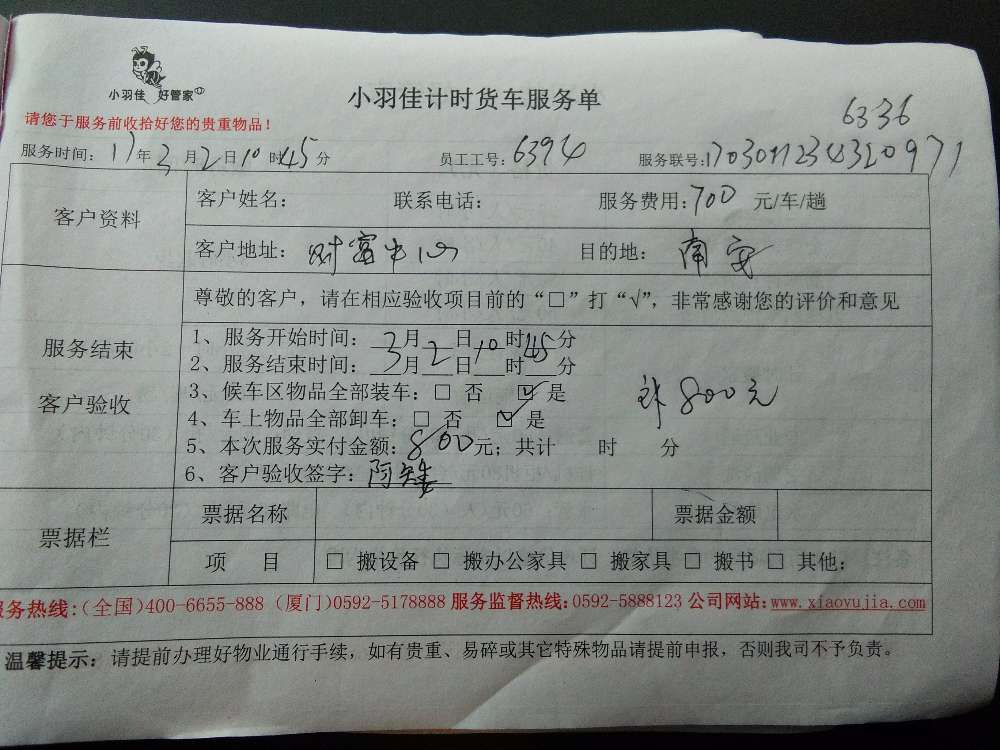 小羽佳 好管家
小羽佳计时货车服务单
6336
请您于服务前收拾好您的贵重物品！
服务时间：17年3月2日10时45分 员工工号：6394 服务联号：
客户资料 客户姓名： 联系电话： 服务费用：700 元/车/趟
客户地址：财富中心 目的地：南安
尊敬的客户，请在相应验收项目前的“□”打“√”，非常感谢您的评价和意见
服务结束
客户验收
1、服务开始时间：3月2日10时45分
2、服务结束时间：___月___日___时___分
3、候车区物品全部装车：□ 否 ☑ 是
4、车上物品全部卸车：□ 否 ☑ 是
800元
5、本次服务实付金额：800元；共计 时 分
6、客户验收签字：
票据栏 票据名称 票据金额
项 目 □ 搬设备 □ 搬办公家具 □ 搬家具 □ 搬书 □ 其他：
服务热线：（全国）400-6655-888（厦门）0592-5178888 服务监督热线：0592-5888123 公司网站：www.xiaoyujia.com
温馨提示：请提前办理好物业通行手续，如有贵重、易碎或其它特殊物品请提前申报，否则我司不予负责。